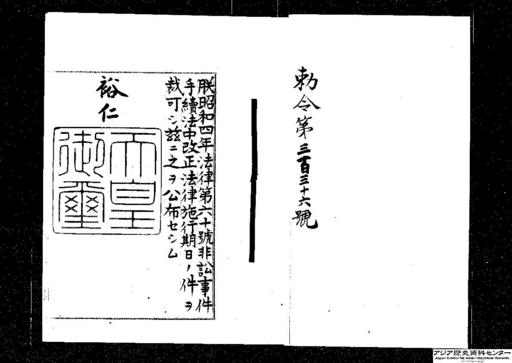 勅令第三百三十六號
朕昭和四年法律第六十號非訟事件
手續法中改正法律施行期日ノ件ヲ
裁可シ茲ニ之ヲ公布セシム
裕仁
天皇
御璽
アジア歴史資料センター
Japan Center for Asian Historical Records